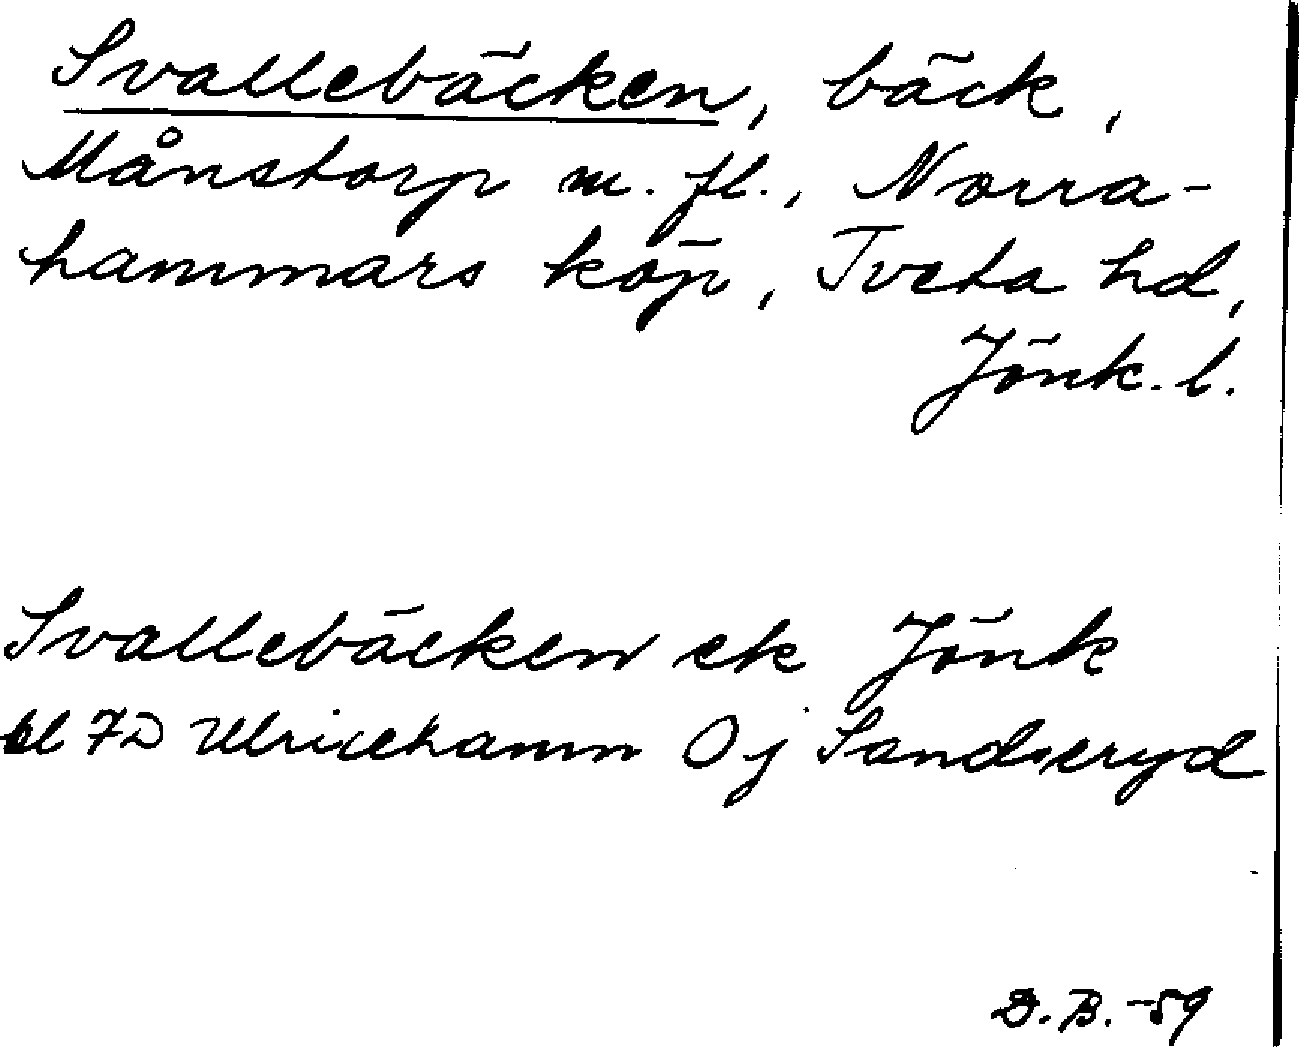 Svallebäcken, bäck,
Månstorp m. fl., Norra-
hammars köp, Tveta hd,
Jönk. l.
Svallebäcken ek Jönk
bl 7D Ulricehamn Oj Sandseryd
D.B. -59